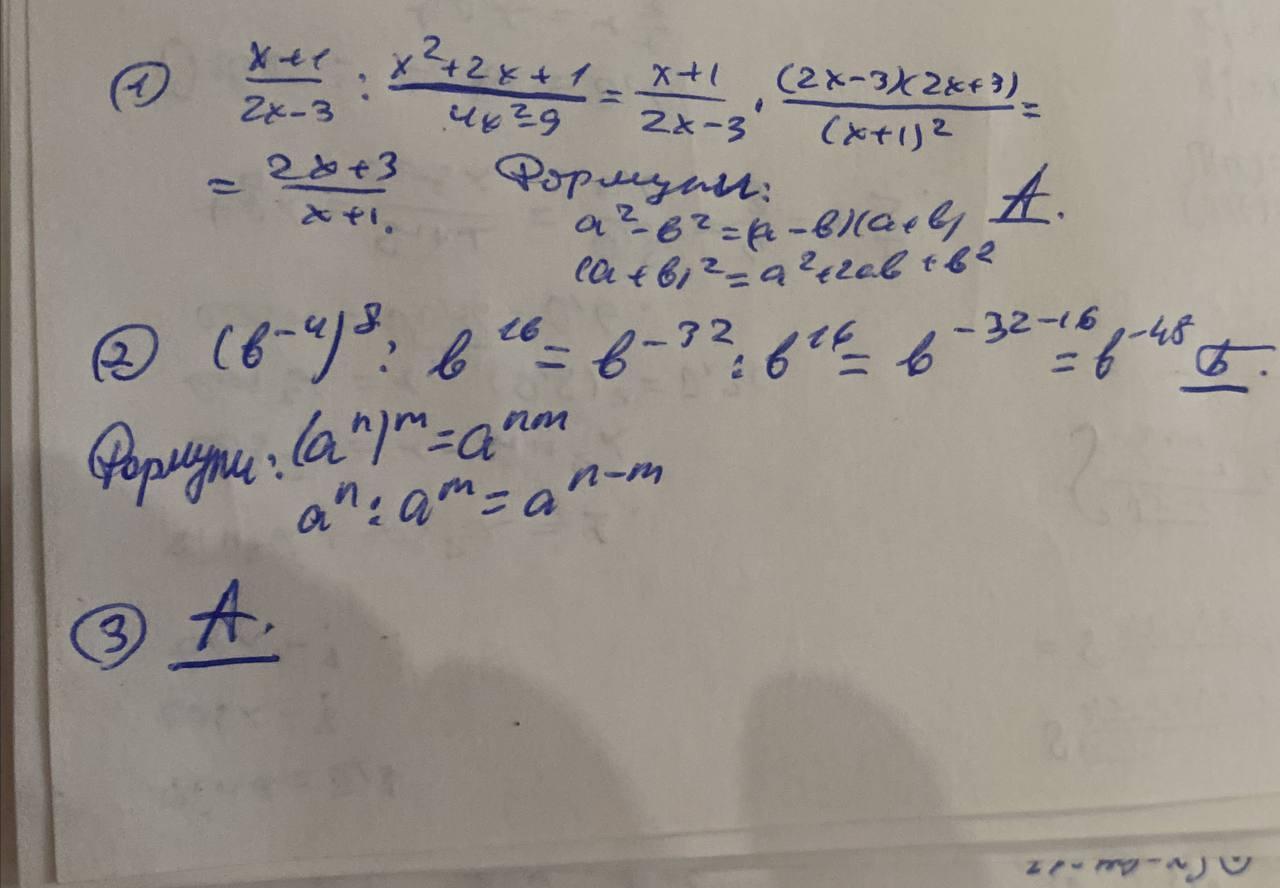 ① x+1/2x-3 : x²+2x+1/4x²-9 = x+1/2x-3 · (2x-3)(2x+3)/(x+1)² =
= 2x+3/x+1. Формули: А.
a²-b²=(a-b)(a+b)
(a+b)²=a²+2ab+b²
② (b⁻⁴)⁸ : b¹⁶ = b⁻³² : b¹⁶ = b⁻³²⁻¹⁶ = b⁻⁴⁸ Б.
Формули: (aⁿ)ᵐ=aⁿᵐ
aⁿ : aᵐ = aⁿ⁻ᵐ
③ А.